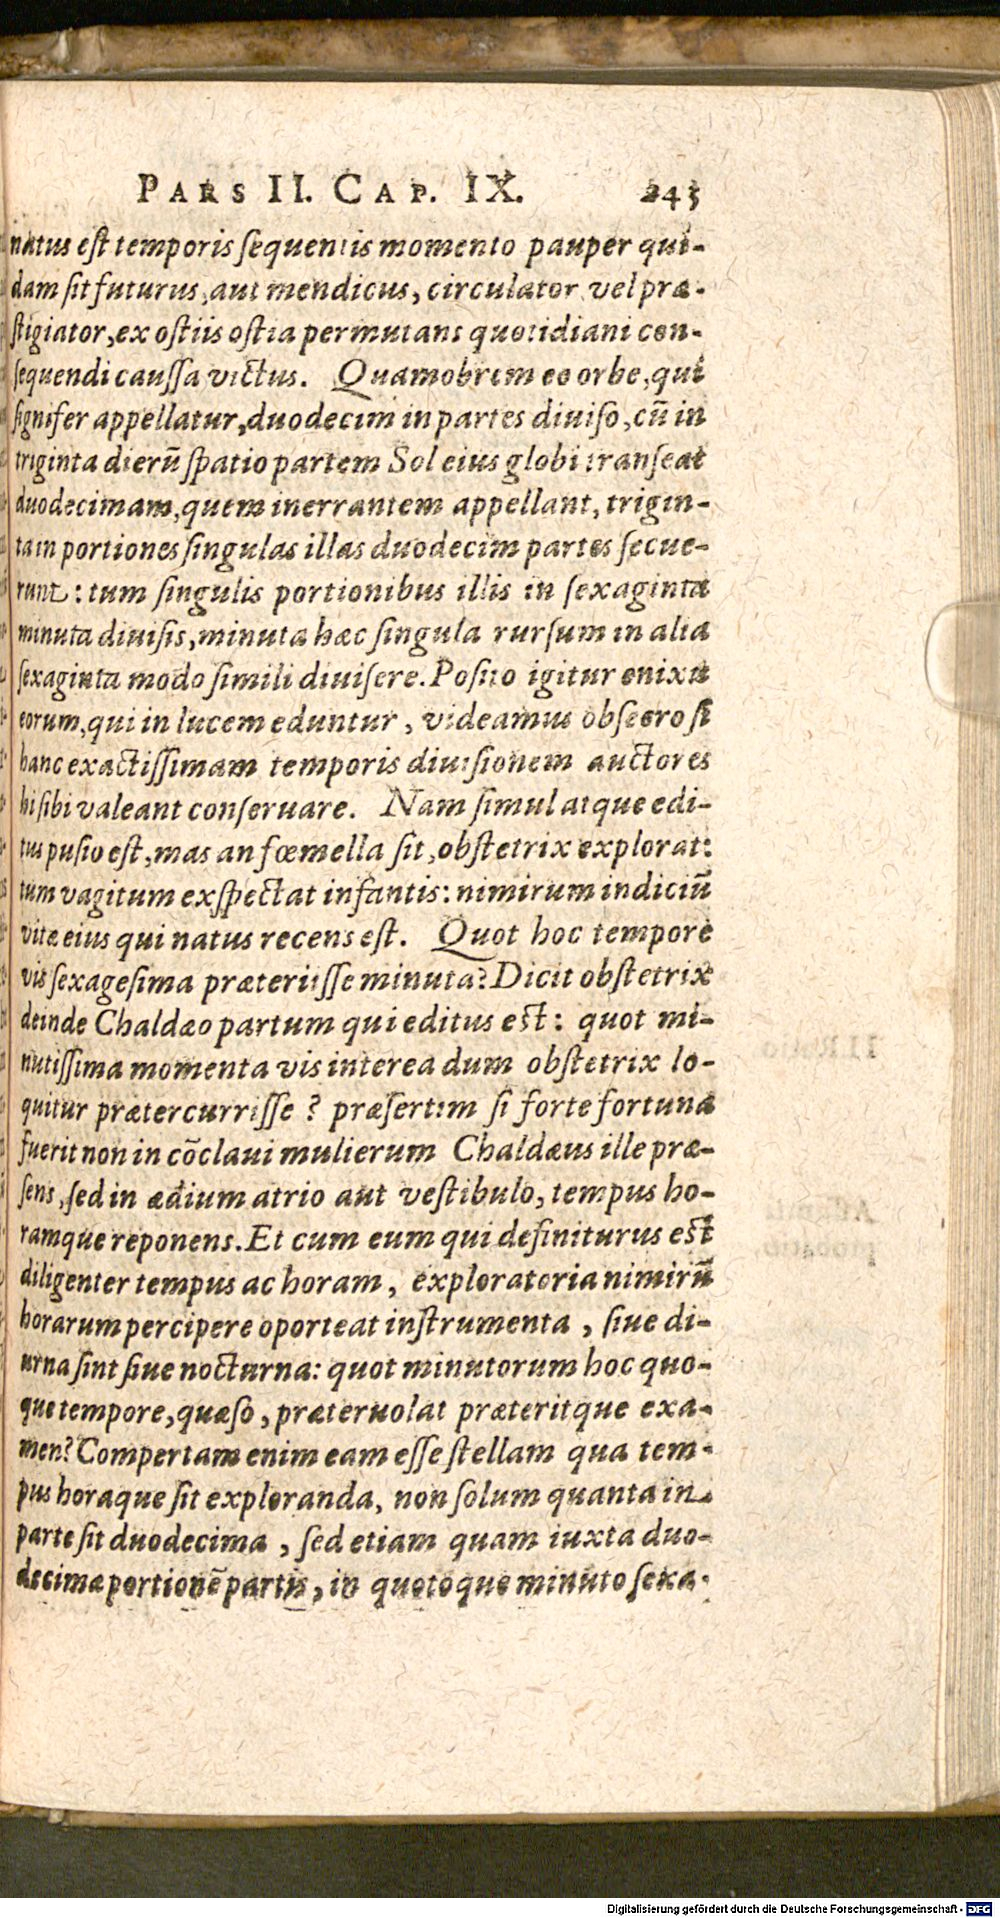 PARS II. CAP. IX. 243
natus est temporis sequentis momento pauper qui-
dam sit futurus, aut mendicus, circulator vel præ-
stigiator, ex ostiis ostia permutans quotidiani con-
sequendi caussa victus. Quamobrem eo orbe, qui
signifer appellatur, duodecim in partes diuiso, cū in
triginta dierū spatio partem Sol eius globi transeat
duodecimam, quem inerrantem appellant, trigin-
ta in portiones singulas illas duodecim partes secue-
runt: tum singulis portionibus illis in sexaginta
minuta diuisis, minuta hæc singula rursum in alia
sexaginta modo simili diuisere. Posito igitur enixu
eorum, qui in lucem eduntur, videamus obsecro si
hanc exactissimam temporis diuisionem auctores
hi sibi valeant conseruare. Nam simul atque edi-
tus pusio est, mas an fœmella sit, obstetrix explorat:
tum vagitum exspectat infantis: nimirum indiciū
vitæ eius qui natus recens est. Quot hoc tempore
vis sexagesima præteriisse minuta? Dicit obstetrix
deinde Chaldæo partum qui editus est: quot mi-
nutissima momenta vis interea dum obstetrix lo-
quitur prætercurrisse? præsertim si forte fortuna
fuerit non in cōclaui mulierum Chaldæus ille præ-
sens, sed in ædium atrio aut vestibulo, tempus ho-
ramque reponens. Et cum eum qui definiturus est
diligenter tempus ac horam, exploratoria nimirū
horarum percipere oporteat instrumenta, siue di-
urna sint siue nocturna: quot minutorum hoc quo-
que tempore, quæso, præteruolat præteritque exa-
men? Compertam enim eam esse stellam qua tem-
pus horaque sit exploranda, non solum quanta in
parte sit duodecima, sed etiam quam iuxta duo-
decimæ portionē partis, in quotoque minuto sexa-
Digitalisierung gefördert durch die Deutsche Forschungsgemeinschaft - DFG